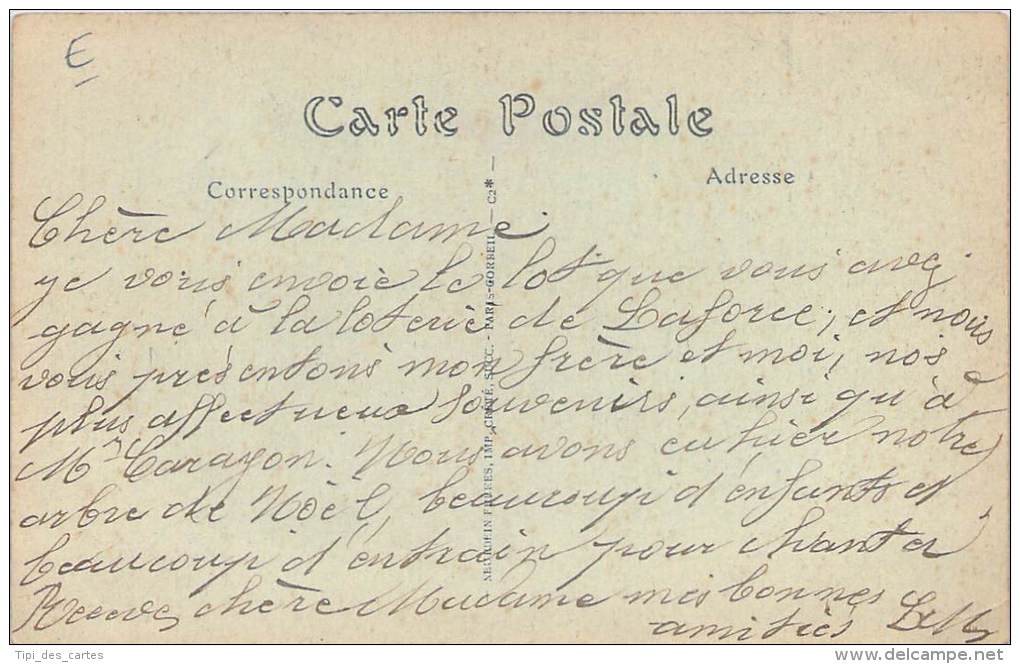 E
Carte Postale
Correspondance
Adresse
NEURDEIN FRÈRES, IMP. CRÉTÉ, SUCC. - PARIS-CORBEIL — C2* —
Chère Madame
je vous envoie le lot que vous avez
gagné à la loterie de Laforce, et nous
vous présentons mon frère et moi, nos
plus affectueux souvenirs, ainsi qu'à
Mr Carayon. Nous avons eu hier notre
arbre de Noël, beaucoup d'enfants et
beaucoup d'entrain pour chanter
Recevez chère Madame mes bonnes
amitiés
Tipi_des_cartes
www.delcampe.net